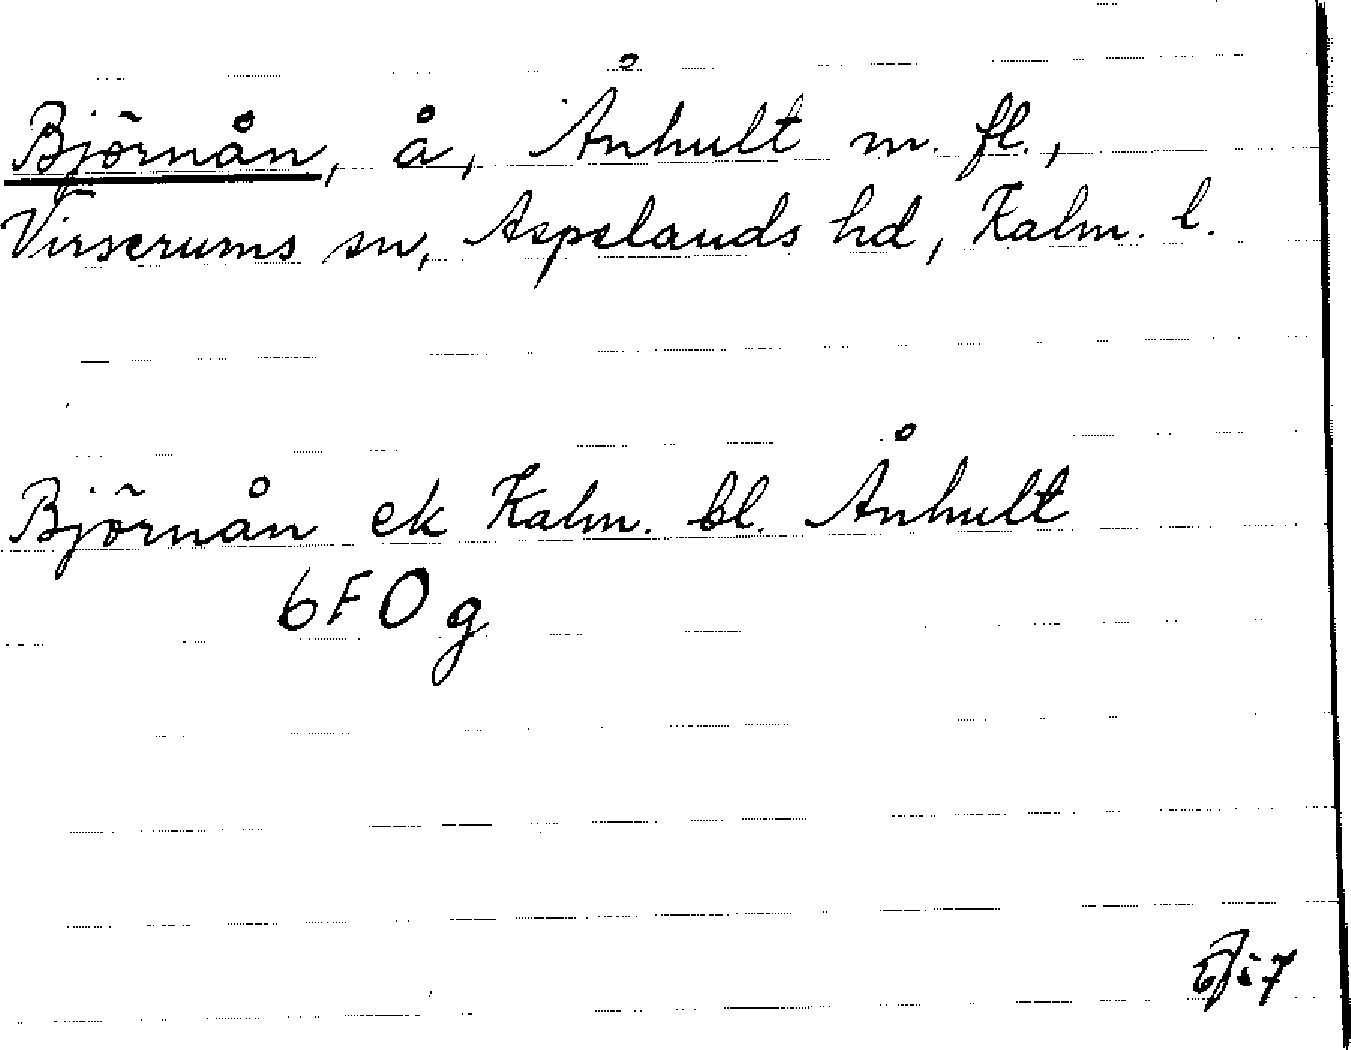 Björnån, å, Ånhult m. fl.,
Virserums sn, Aspelands hd, Kalm. l.
Björnån ek Kalm. bl. Ånhult
6 F 0 g